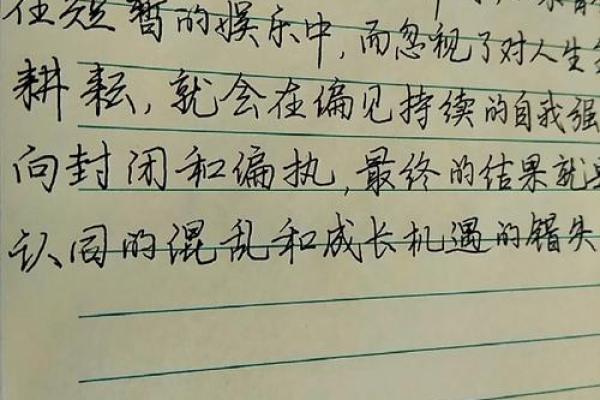 在短暂的娱乐中,而忽视了对人生
耕耘,就会在偏见持续的自我强
向封闭和偏执,最终的结果就是
认同的混乱和成长机遇的错失